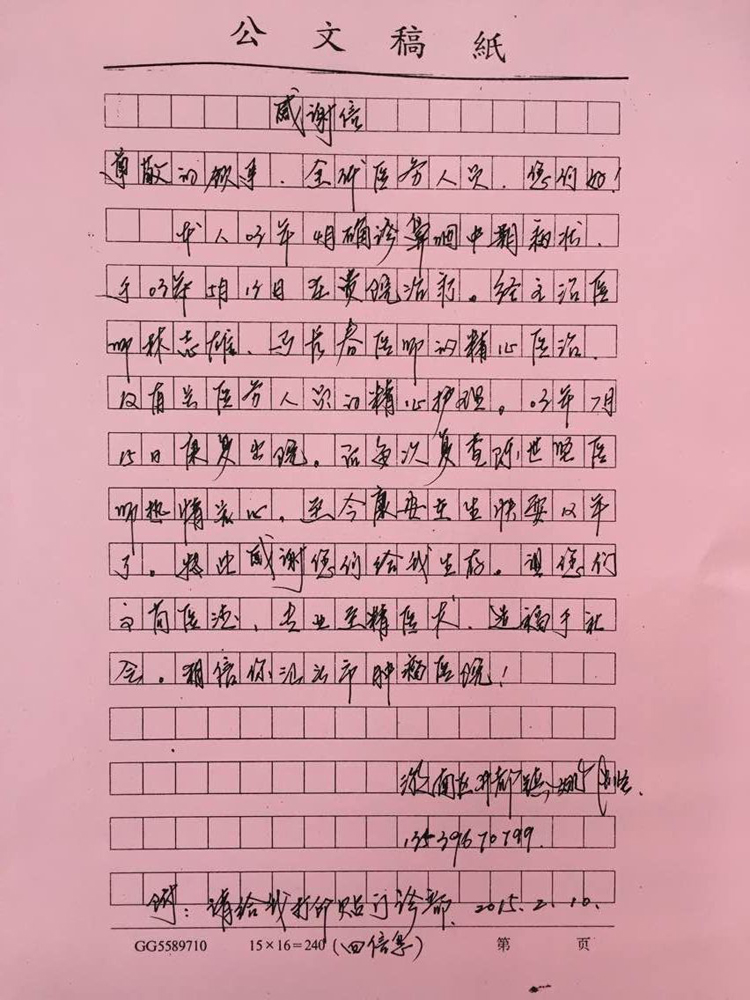 公文稿紙
感谢信
尊敬的领导、全体医务人员、您们好!
本人03年4月确诊鼻咽中期病状、
于03年5月15日在贵院治疗。经主治医
师林志雄、马长春医师的精心医治、
及有关医务人员的精心护理。03年7月
15日康复出院。后每次复查陈世坚医
师热情关心,至今康安重生快要12年
了。特此感谢您们给我生存。祝您们
文尚医德、专业至精医术、造福于社
会。相信你汕头市肿瘤医院!
13539670799
附:请给我打印贴门诊部. 2015.2.10.
GG5589710 15×16=240 (回信息) 第 页